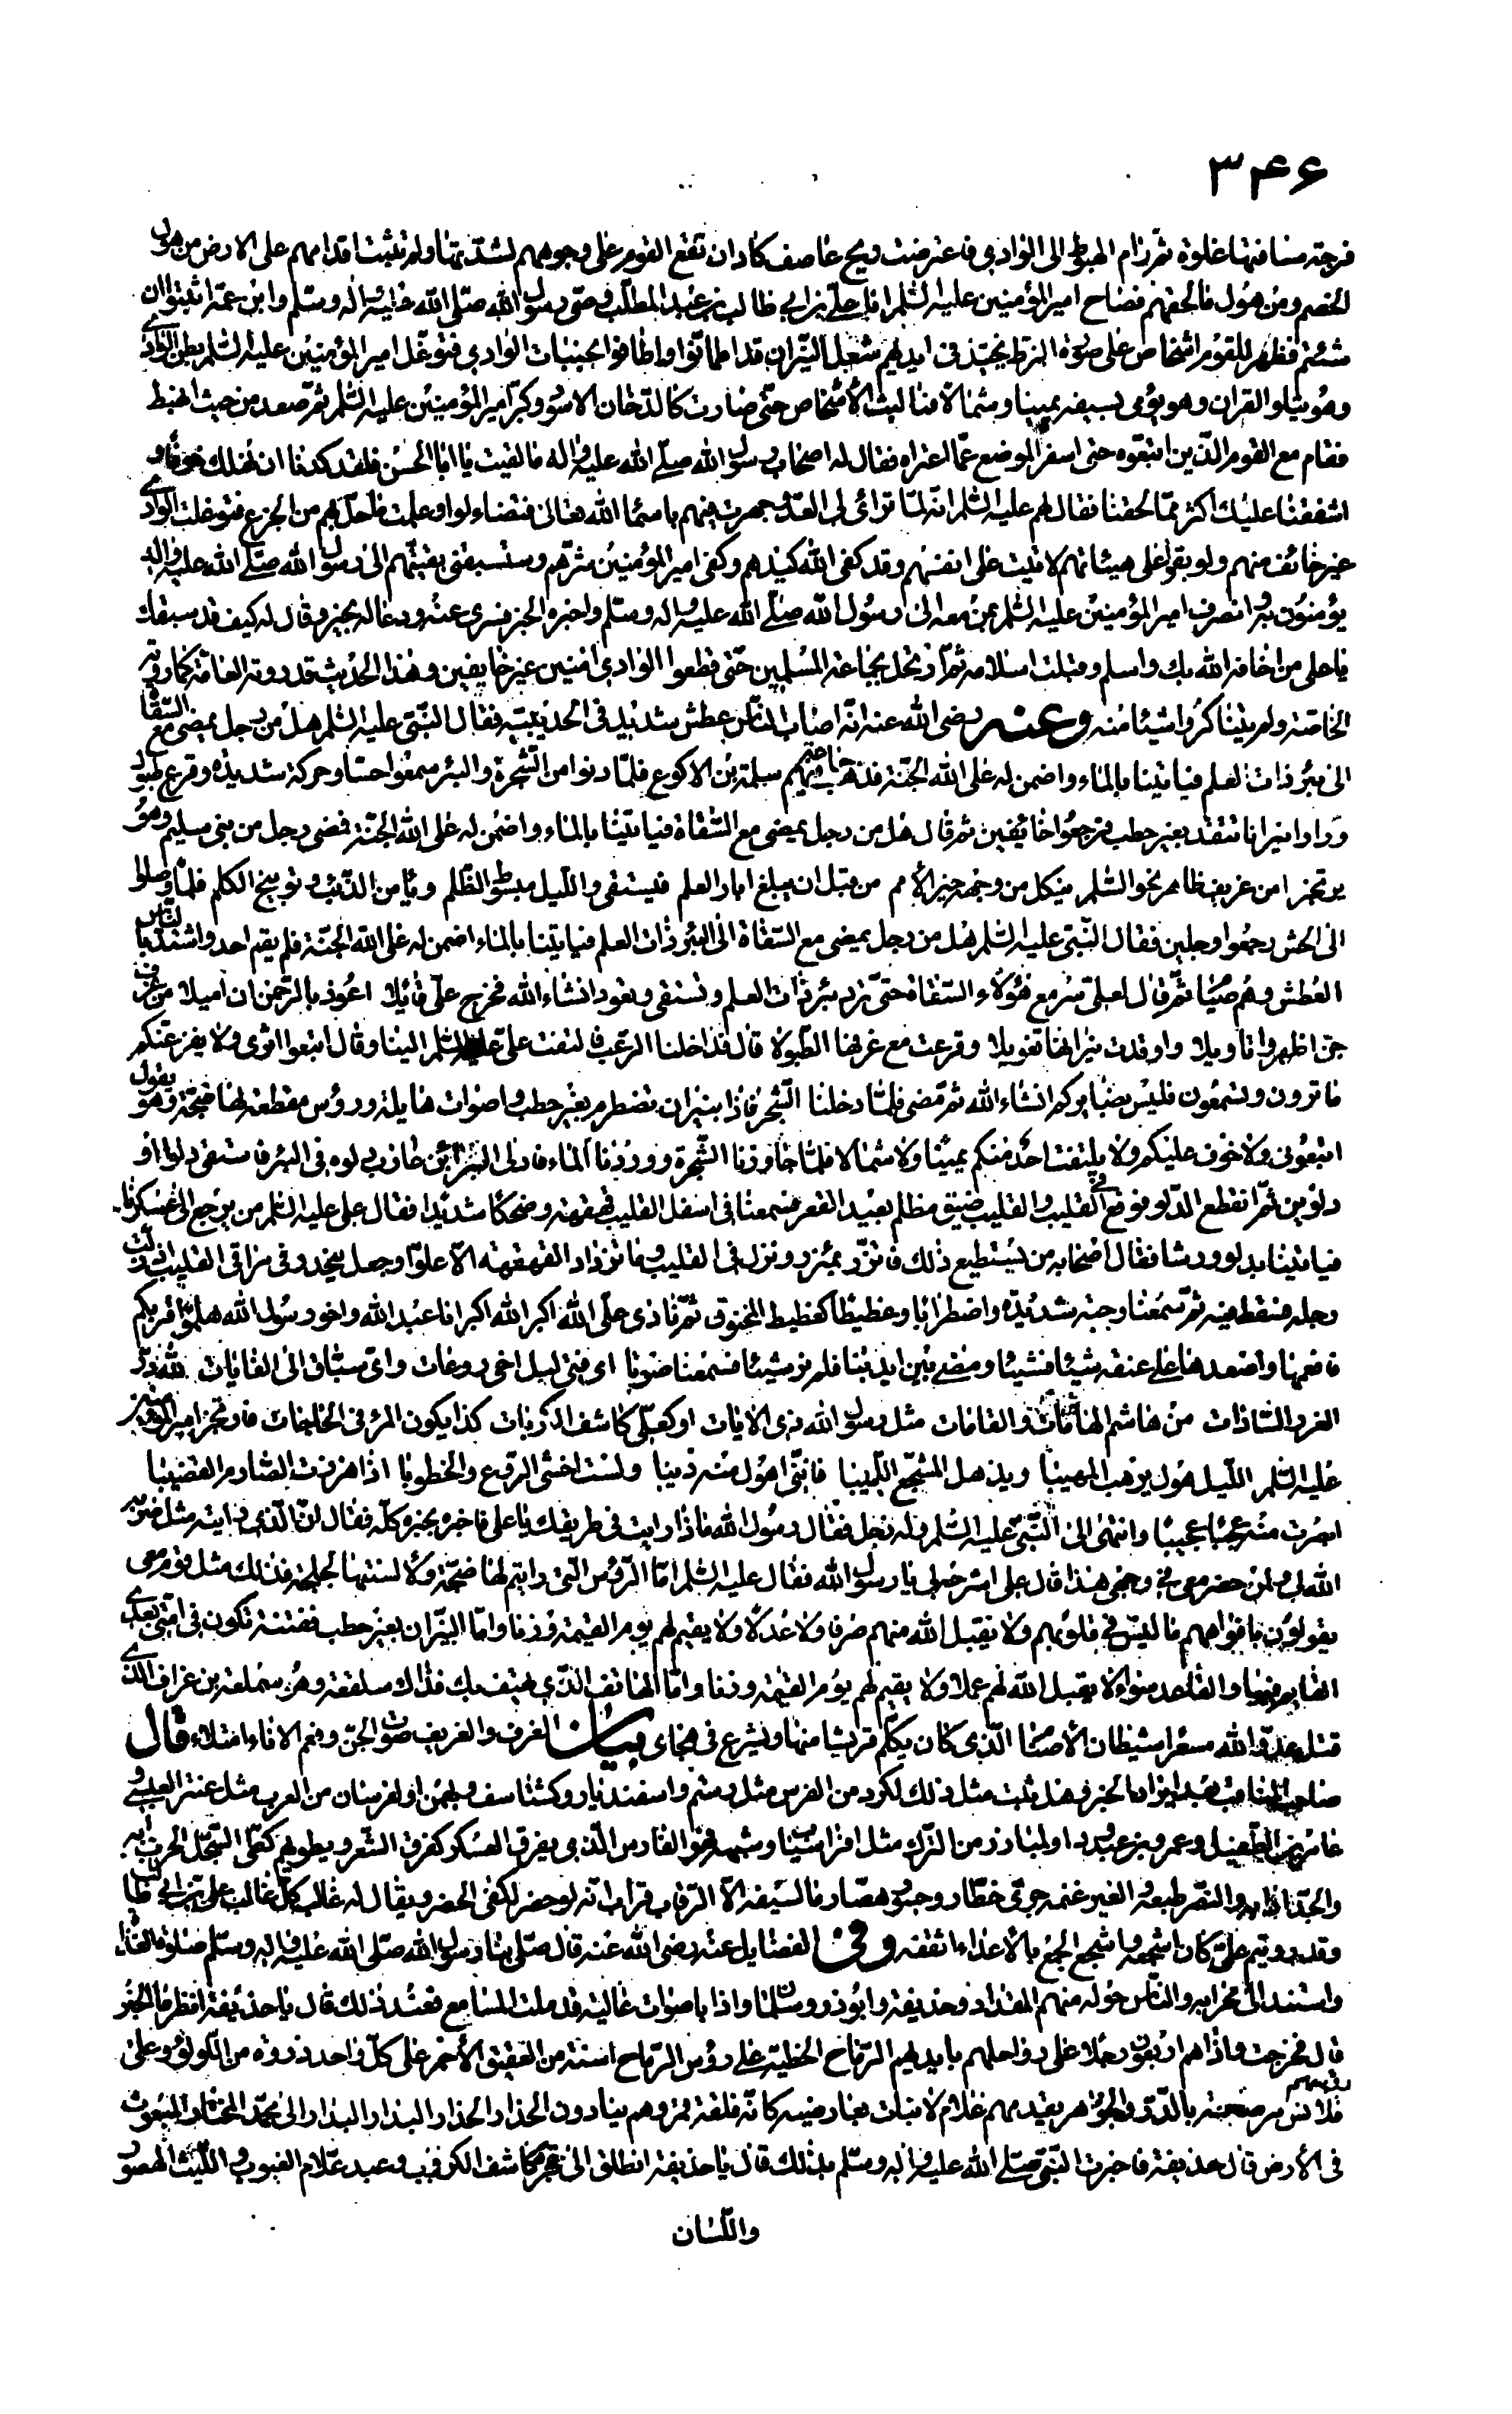 ٣۴۶
فرجة مسافتها غلوة ثم رام الهبوط الى الوادي فاعترضت ريح عاصف كاد ان تقع القوم على وجوههم لشدتها ولم تثبت اقدامهم على الارض من هول
الخصم ومن هول ما لحقهم فصاح امير المؤمنين عليه السلم انا على بن ابي طالب بن عبد المطلب وصى رسول الله صلى الله عليه واله وسلم وابن عمه اثبتوا ان
شئتم فظهر للقوم اشخاص على صورة الزط يخيل في ايديهم شعل النيران قد اطمانوا واطافوا بجنبات الوادي فتوغل امير المؤمنين عليه السلم بطن الوادي
وهو يتلو القران وهو يومى بسيفه يمينا وشمالا فما لبث الأشخاص حتى صارت كالدخان الاسود وكبر امير المؤمنين عليه السلم ثم صعد من حيث انهبط
فقام مع القوم الذين اتبعوه حتى اسفر الموضع عما اعتراه فقال له اصحاب رسول الله صلى الله عليه واله ما لقيت يا ابا الحسن فلقد كدنا ان نهلك خوفا و
اشفقنا عليك اكثر مما لحقنا فقال لهم عليه السلم انه لما ترائى لى العدو جهرت فيهم باسماء الله تعالى فتضاءلوا وعلمت ما حل بهم من الجزع فتوغلت الوادي
غير خائف منهم ولو بقوا على هيئاتهم لاتيت على انفسهم وقد كفى الله كيدهم وكفى امير المؤمنين شرهم وستسبقنى بقيتهم الى رسول الله صلى الله عليه واله
يؤمنون به وانصرف امير المؤمنين عليه السلم بمن معه الى رسول الله صلى الله عليه واله وسلم واخبره الخبر فسرى عنه ودعا له بخير وقال له كيف قد سبقك
يا على من اخافه الله بك واسلم وقبلت اسلامه ثم ارتحل بجماعة المسلمين حتى قطعوا الوادي امنين غير خايفين وهذا الحديث قد روته العامة كما روته
الخاصة ولم يتناكروا شيئا منه وعنه رضى الله عنه انه اصاب الناس عطش شديد في الحديبية فقال النبي عليه السلم هل من رجل يمضى مع السقاة
الى بئر ذات العلم فياتينا بالماء واضمن له على الله الجنة فذهب جماعة فيهم سلمة بن الاكوع فلما دنوا من الشجرة والبئر سمعوا حسا وحركة شديدة وقرع طبول
وراوا نيرانا تتقد بغير حطب فرجعوا خائفين ثم قال هل من رجل يمضى مع السقاة فياتينا بالماء واضمن له على الله الجنة فمضى رجل من بنى سليم وهو
يرتجز امن عزيف ظاهر نحو السلم ينكل من وجهه خير الأمم من قبل ان يبلغ ابار العلم فيستقى والليل مبسوط الظلم ويأمن الذئب وتوبيخ الكلم فلما وصلوا
الى الحش رجعوا وجلين فقال النبي عليه السلم هل من رجل يمضى مع السقاة الى البئر ذات العلم فياتينا بالماء اضمن له على الله الجنة فلم يقم احد واشتد بالناس
العطش وهم صيام ثم قال لعلى سر مع هؤلاء السقاة حتى ترد بئر ذات العلم وتستقى وتعود انشاء الله فخرج على قائلا اعوذ بالرحمن ان اميلا من عزف
جن اظهروا تاويلا واوقدت نيرانها تغويلا وقرعت مع عزفها الطبولا قال فداخلنا الرعب فالتفت على عليه السلم الينا وقال اتبعوا اثرى ولا يفزعنكم
ما ترون وتسمعون فليس بضايركم انشاء الله ثم مضى فلما دخلنا الشجر فاذا بنيران تضطرم بغير حطب واصوات هايلة ورؤس مقطعة لها ضجة وهو يقول
اتبعونى ولا خوف عليكم ولا يلتفت احد منكم يمينا ولا شمالا فلما جاوزنا الشجرة ووردنا الماء فادلى البراء بن عازب دلوه في البئر فاستقى دلوا او
دلوين ثم انقطع الدلو فوقع في القليب والقليب ضيق مظلم بعيد القعر فسمعنا في اسفل القليب قهقهة وضحكا شديدا فقال على عليه السلم من يرجع الى عسكرنا
فياتينا بدلو ورشا فقال اصحابه من يستطيع ذلك فاتزر بمئزر ونزل في القليب وما تزداد القهقهة الا علوا وجعل ينحدر في مراقى القليب اذ زلت
رجله فسقط فيه ثم سمعنا وجبة شديدة واضطرابا وغطيطا كغطيط المخنوق ثم نادى على الله اكبر الله اكبر انا عبد الله واخو رسول الله هلموا قربكم
فافعمها واصعدها على عنقه شيئا فشيئا ومضى بين ايدينا فلم نر شيئا فسمعنا صوتا اى فتى ليل اخى روعات واى سباق الى الغايات لله در
الغرر السادات من هاشم الهامات والقامات مثل رسول الله ذى الايات او كعلى كاشف الكربات كذا يكون المرؤ في الحاجات فارتجز امير المؤمنين
عليه السلم الليل هول يرهب المهيبا ويذهل المشجع اللبيبا فاننى اهول منه ذيبا ولست اخشى الروع والخطوبا اذا هززت الصارم القضيبا
ابصرت منه عجبا عجيبا وانتهى الى النبي عليه السلم وله زجل فقال رسول الله ماذا رايت في طريقك يا على فاخبره بخبره كله فقال ان الذى رايته مثل ضربه
الله لى ولمن حضر معى في وجهى هذا قال على اشرحه لى يا رسول الله فقال عليه السلم اما الرؤس التى رايتم لها ضجة ولالسنتها لجلجة فذلك مثل قوم معى
يقولون بافواههم ما ليس في قلوبهم ولا يقبل الله منهم صرفا ولا عدلا ولا يقيم لهم يوم القيمة وزنا واما النيران بغير حطب ففتنة تكون في امتى بعدى
القايم فيها والقاعد سواء لا يقبل الله لهم عملا ولا يقيم لهم يوم القيمة وزنا واما الهاتف الذى هتف بك فذاك سلقعة وهو سملعة بن عزاف الذى
قتل عدو الله مسعرا شيطان الأصنام الذى كان يكلم قريشا منها ويشرع في هجاى بيان العزف والعزيف صوت الجن وفعم الاناء امتلاء قال
صاحب المناقب بعد ايراد الخبر وهل ثبت مثل ذلك لكرد من الفرس مثل رستم واسفنديار وكشتاسف وبهمن او لفرسان من العرب مثل عنتر العبسى و
عامر بن الطفيل وعمرو بن عبدود او لمبارز من الترك مثل افراسياب وشبهه فهو الفارس الذى يفرق العسكر كفرق الشعر ويطويهم كطى السجل الحرب دابه
والجد ادابه والنصر طبعه والغير غنمه جرئ خطار وجسور هصار ما لسيفه الا الرقاب قراب انه لو حضر لكفى الحضر ويقال له غالب كل غالب على بن ابى طالب
وقد رويتم على كان اشجعهم واشجع الجمع بالأعداء اثقفه وفى الفضايل عنه رضى الله عنه قال صلى بنا رسول الله صلى الله عليه واله وسلم صلوة الغداة
واستند الى محرابه والناس حوله منهم المقداد وحذيفة وابوذر وسلمان واذا باصوات عالية قد ملت المسامع فعند ذلك قال يا حذيفة انظر ما الخبر
قال فخرجت واذا هم اربعون رجلا على رواحلهم بايديهم الرماح الخطية على رؤس الرماح اسنة من العقيق الأحمر على كل واحد ذروة من اللؤلؤ وعلى رؤسهم
قلانس مرصعة بالدر والجواهر يقدمهم غلام لا نبات بعارضيه كانه فلقة قمر وهم ينادون الحذار الحذار البدار البدار الى محمد المختار المبعوث
فى الأرض قال حذيفة فاخبرت النبي صلى الله عليه واله وسلم بذلك قال يا حذيفة انطلق الى حجرة كاشف الكروب وعبد علام الغيوب والليث الهصور
واللسان